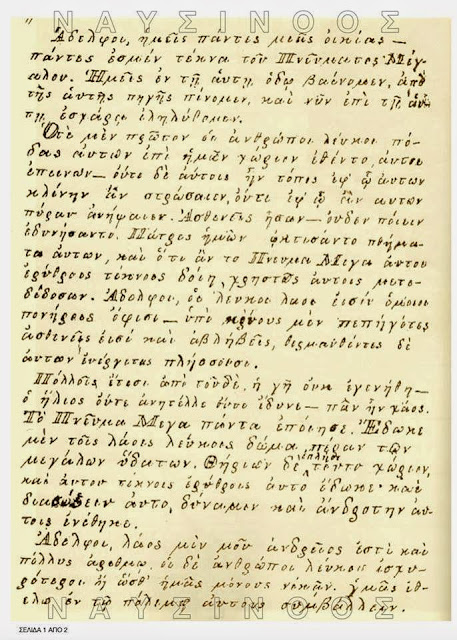 ΝΑΥΣΙΝΟΟΣ
"
Ἀδελφοι, ἡμεῖς πάντες μεᾶς οἰκίας —
πάντες ἐσμέν τέκνα τοῦ Πνεύματος Μεγ
αλου. Ἡμεῖς ἐν τῇ αὐτῃ ὁδῳ βαίνομεν, ἀπὸ
τῆς αὐτῆς πηγῆς πίνομεν, καὶ νῦν ἐπι τῇ αὐ
τῃ ἐσχάρᾳ ἐληλύθομεν.
Ὁτε μὲν πρῶτον οἱ ἀνθρωποι λευκοι πό-
δας αὐτων ἐπὶ ἡμῶν χωριον ἐθεντο, αὐτοι
ἐπεινων — οὐτε δὲ αὐτοις ἦν τόπος ἐφ ᾡ αὐτων
κλίνην ἂν στρώσαιεν, οὐτε ἐφ ᾡ ἂν αυτων
πύραν ἀνηψαιεν. Ἀσθενεῖς ἦσαν — οὐδεν ποιειν
ἐδυνήσαντο. Πάτρες ἡμῶν ᾠκτισαντο πθήμα-
τα αὐτων, καὶ ὅτι ἂν το Πνευμα Μεγα αὐτου
ἐρύθροις τέκνοις δοιη, χρηστῶς αὐτοις μετε-
δίδοσαν. Ἀδελφοι, οἱ λευκοι λαοι εἰσιν ὁμοιοι
πονήροις ὀφισι — ὑπὸ κρύους μὲν πεπηγότες
ἀσθενεῖς εἰσὶ καὶ ἀβλήβεῖς, θερμανθέντες δὲ
αὐτων ἐνέργετας πλήσσουσι.
Πολλοῖς ἐτεσι ἀπὸ τουδε, ἡ γῆ οὐκ ἐγενήθη —
ὁ ἥλιος οὐτε ἀνητέλλε οὐτε ἐδυνε — πᾶν ἦν χάος.
Τὸ Πνεῦμα Μεγα πάντα ἐποιησε. Ἔδωκε
μὲν τοῖς λάοις λεύκοις δῶμα πέραν τῶν
μεγάλων ὕδατων. Θήριων δὲ τοῦτο χωριον,
και αὐτου τέκνοις ἐρύθροις αὐτο ἔδωκε καὶ
αὐτο, δύναμιν καὶ ἀνδροτην αὐ-
τοις ἐνέθηκε.
Ἀδελφοι, λαος μὲν μου ἀνδρεῖος ἐστὶ καὶ
πόλλυς ἀριθμῳ, οἱ δὲ ἀνθρωποι λεύκοι ἰσχυ-
ρότεροι ἢ ὥσθ' ἡμᾶς μόνους νικᾷν. ὑμᾶς ἐθ-
ελω ἐν τῷ πόλεμῳ αὐτους συμβάλλειν.
ΝΑΥΣΙΝΟΟΣ
ΣΕΛΙΔΑ 1 ΑΠΟ 2